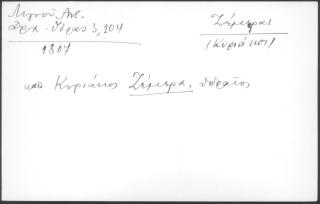 Λιγνού Αντ.
Αρχ. Ύδρας 3, 104
1807
Ζέμερας
(Κυριάκος)
καπ Κυριάκος Ζέμερα, υδραίος